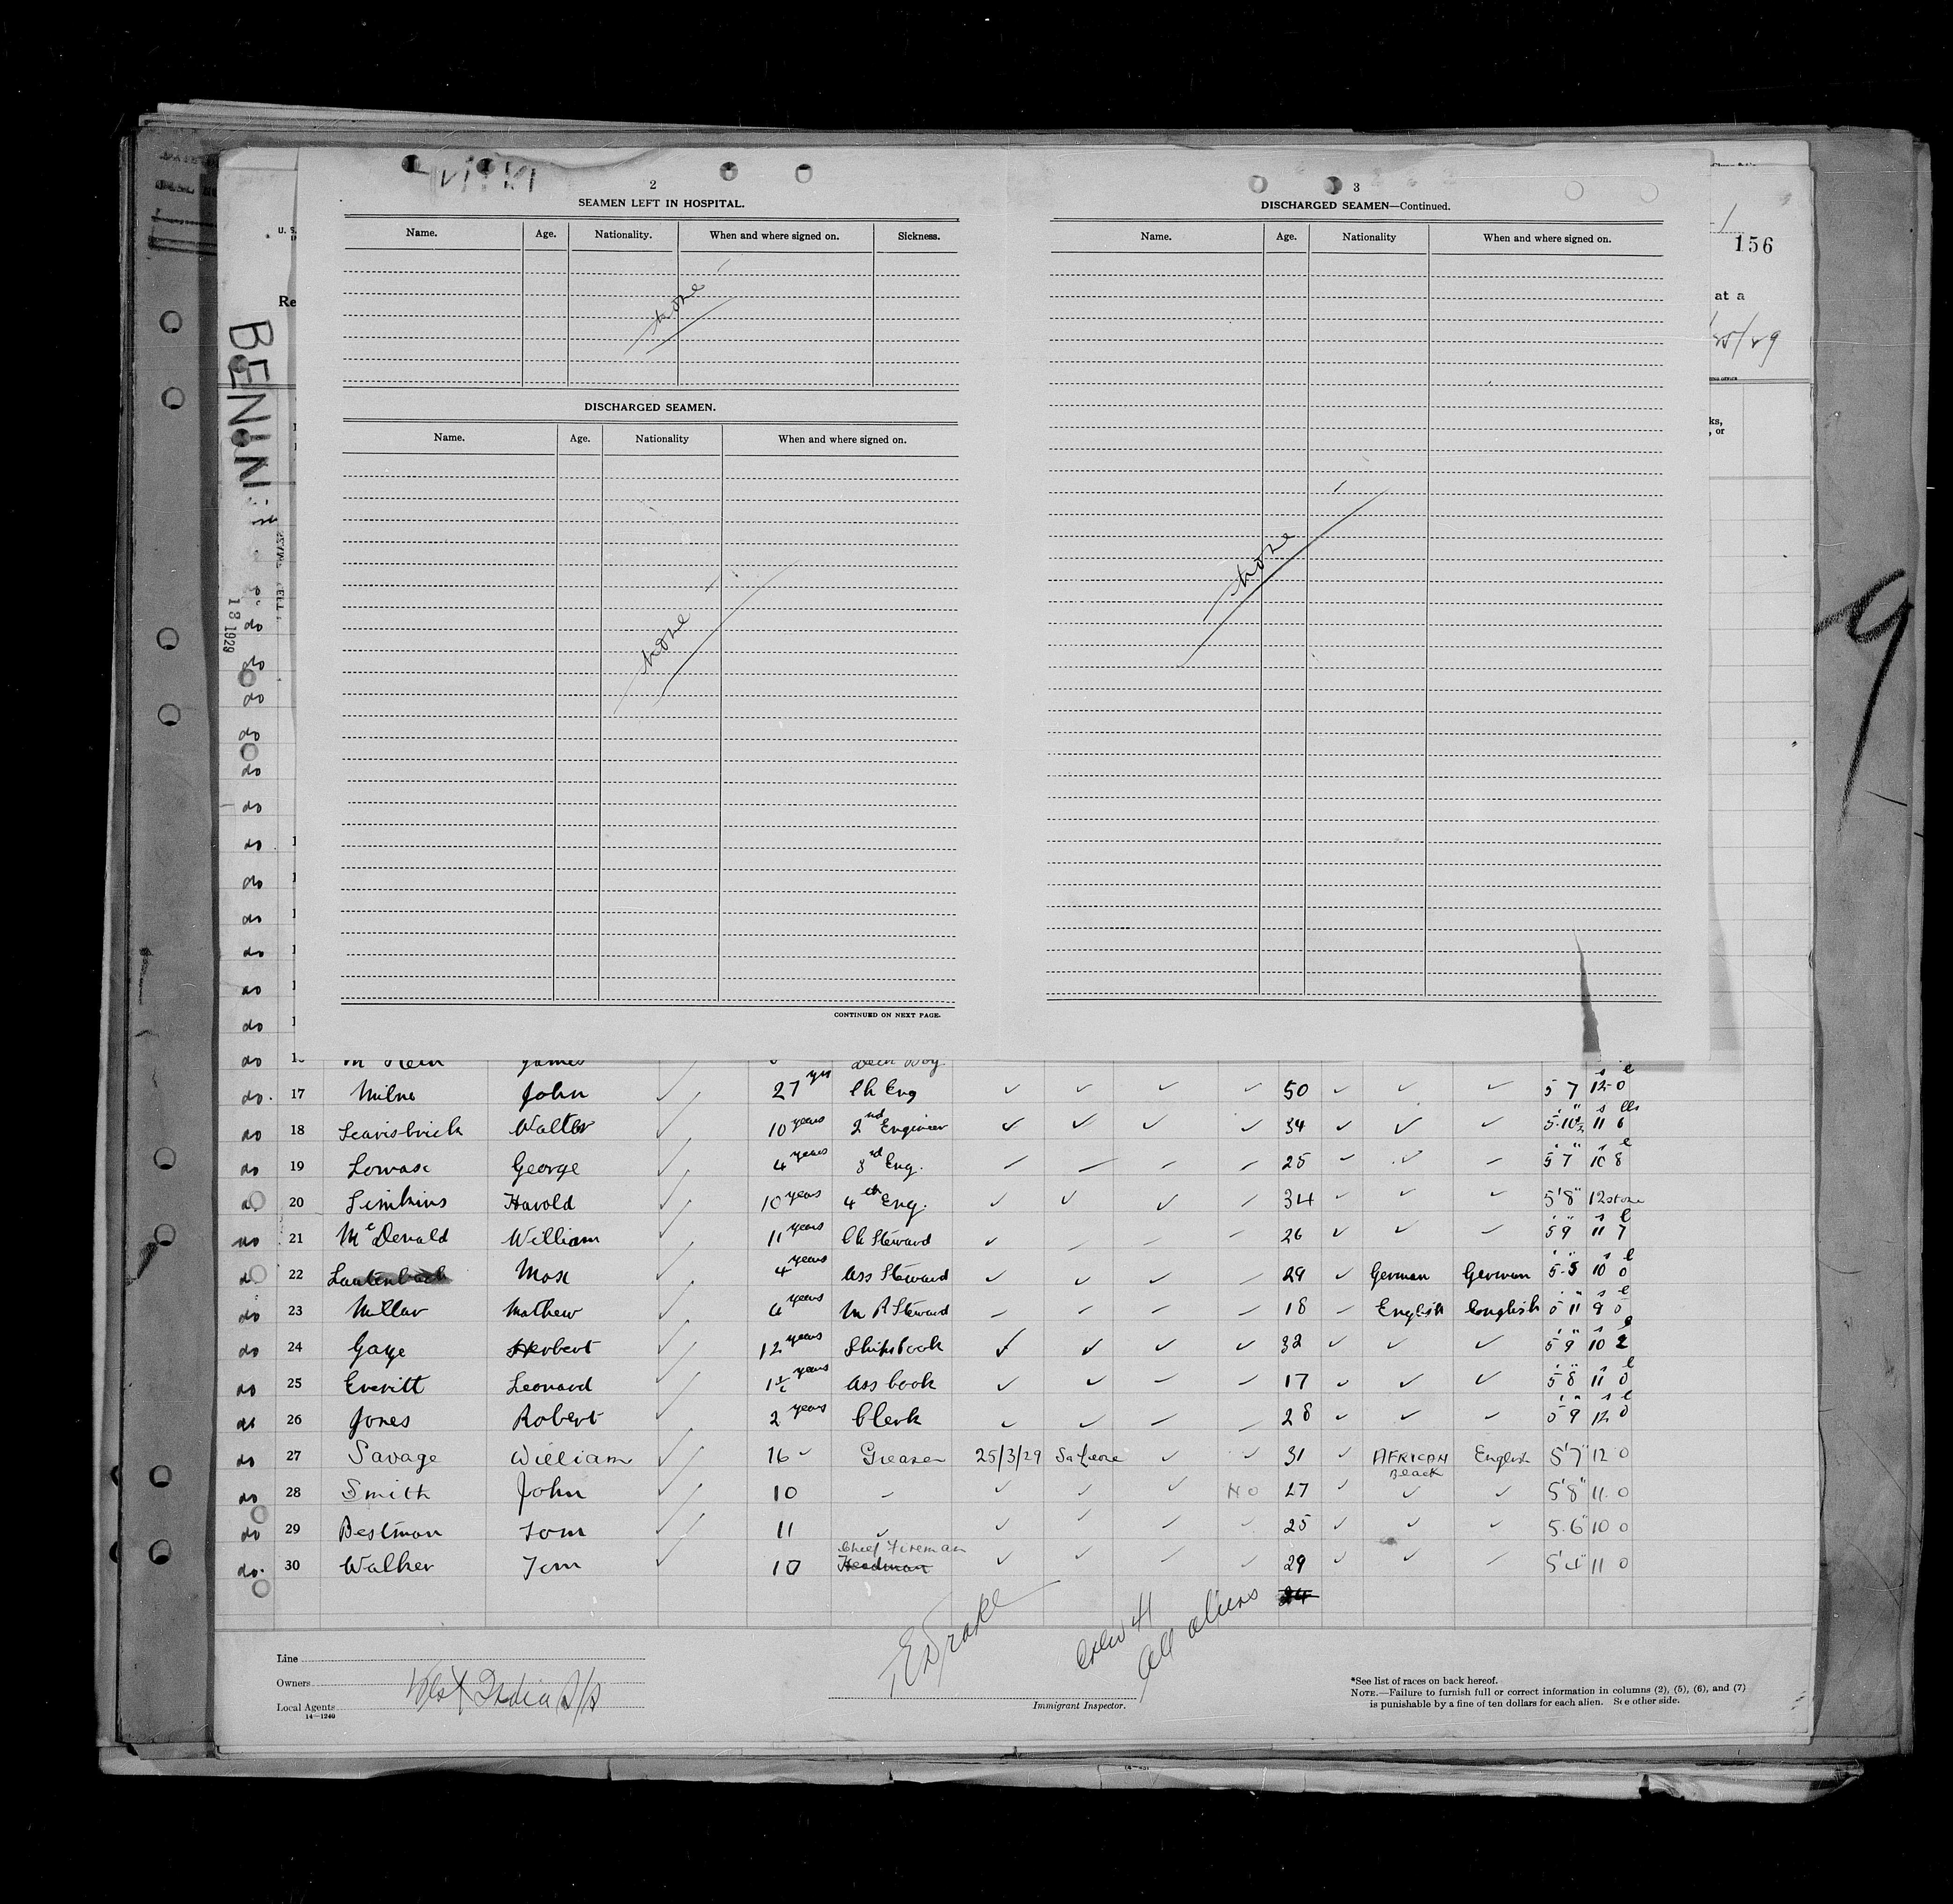 2
SEAMEN LEFT IN HOSPITAL.
Name. Age. Nationality. When and where signed on. Sickness.
none
DISCHARGED SEAMEN.
Name. Age. Nationality When and where signed on.
none
CONTINUED ON NEXT PAGE.
3
DISCHARGED SEAMEN—Continued.
Name. Age. Nationality When and where signed on.
none
156
U. S.
Re
at a
ks,
, or
BENIN
13 1929
9
do
do
do
do
do
do
do
do
do
do
do
do
do James Deck Boy
do. 17 Milne John 27 yrs Ch Eng 50 5 7 12 0
do 18 Scarisbrick Walter 10 years 2nd Engineer 34 5.10½ 11 6
do 19 Lomax George 4 years 3rd Eng. 25 5 7 10 8
do 20 Simkins Harold 10 years 4th Eng. 34 5'8" 12 stone
do 21 McDonald William 11 years Ch Steward 26 5 9 11 7
do 22 Lautenbach Max 4 years Ass Steward 29 German German 5.5 10 0
do 23 Millar Mathew 4 years M R Steward 18 English English 5 11 9 0
do 24 Gaye Herbert 12 years Ships Cook 32 5 9 10 2
do 25 Everitt Leonard 1½ years Ass Cook 17 5 8 11 0
do 26 Jones Robert 2 years Clerk 28 5 9 12 0
do 27 Savage William 16 Greaser 25/3/29 Sa Leone 31 AFRICAN Black English 5'7" 12 0
do 28 Smith John 10 NO 27 5'8" 11 0
do 29 Bestman Tom 11 25 5.6" 10 0
do. 30 Walker Tom 10 Chief Fireman Headman 29 5'4" 11 0
24
Crew 41
All aliens
Line
Owners
Local Agents West India S/S
14—1240
E Drake
Immigrant Inspector.
*See list of races on back hereof.
NOTE.—Failure to furnish full or correct information in columns (2), (5), (6), and (7)
is punishable by a fine of ten dollars for each alien. See other side.